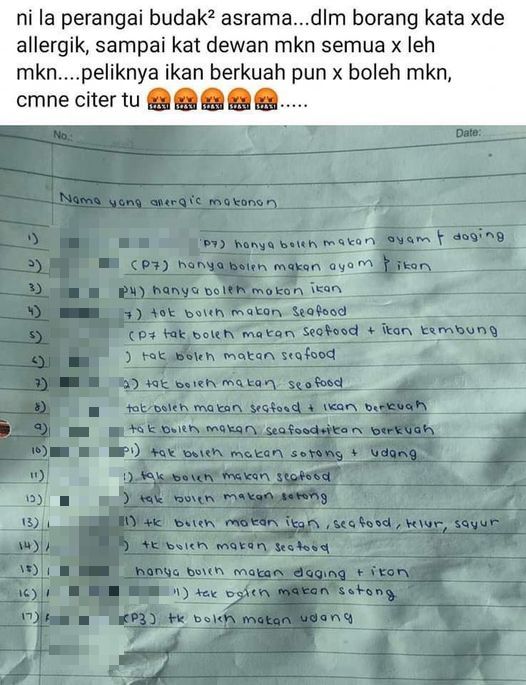 ni la perangai budak² asrama...dlm borang kata xde
allergik, sampai kat dewan mkn semua x leh
mkn....peliknya ikan berkuah pun x boleh mkn,
cmne citer tu 🤬🤬🤬🤬🤬.....
No.: Date:
Nama yang allergic makanan
1) P7) hanya boleh makan ayam + daging
2) (P7) hanya boleh makan ayam + ikan
3) P4) hanya boleh makan ikan
4) 7) tak boleh makan seafood
5) (P7 tak boleh makan seafood + ikan kembung
6) ) tak boleh makan seafood
7) 2) tak boleh makan seafood
8) tak boleh makan seafood + ikan berkuah
9) tak boleh makan seafood+ikan berkuah
10) P1) tak boleh makan sotong + udang
11) 1) tak boleh makan seafood
12) ) tak boleh makan sotong
13) 1) tk boleh makan ikan, seafood, telur, sayur
14) ) tk boleh makan seafood
15) hanya boleh makan daging + ikan
16) 1) tak boleh makan sotong
17) (P3) tk boleh makan udang